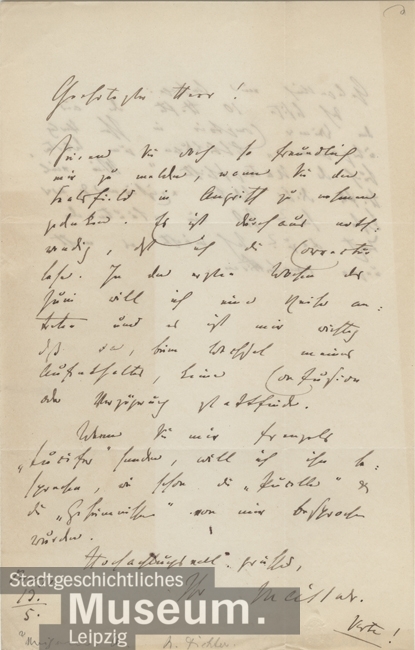 Geehrtester Herr!
Seien Sie doch so freundlich
mir zu melden, wann Sie den
in Angriff zu nehmen
gedenken. Es ist durchaus noth-
wendig, daß ich die Correctur
lese. In der ersten Woche des
Juni will ich eine Reise an-
treten und es ist mir wichtig
daß da, beim Wechsel meines
Aufenthaltes, keine Confusion
oder Verzögerung stattfinde.
Wenn Sie mir Frenzels
"Lucifer" senden, will ich ihn be-
sprechen, wie schon die "Pucelle" &
die "Geheimnisse" von mir besprochen
wurden.
Hochachtungsvoll grüßt,
Ihr Meißner.
15.
5.
Verte!
Stadtgeschichtliches
Museum.
Leipzig